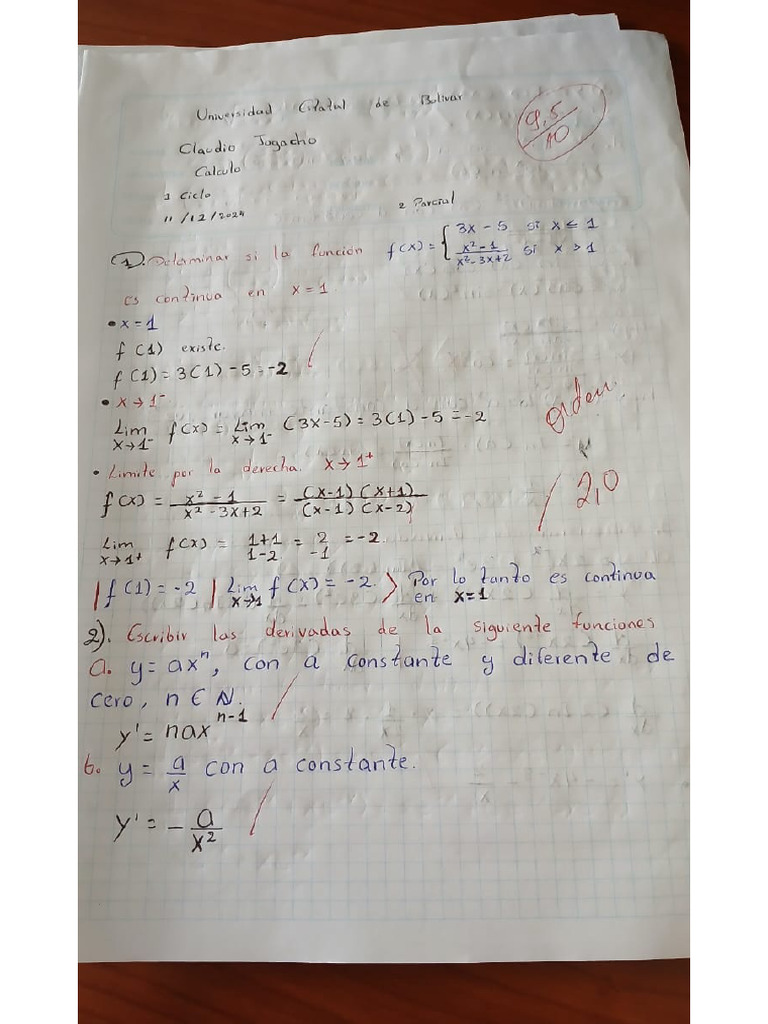 Universidad Estatal de Bolivar
9,5/10
Claudio Jogacho
Calculo
1 Ciclo
2 Parcial
11/12/2024
1. Determinar si la función f(x) = { 3x - 5 si x ≤ 1
x² - 1 / x² - 3x + 2 si x > 1
es continua en x = 1
• x = 1
f(1) existe.
f(1) = 3(1) - 5 = -2
• x → 1⁻
Lim x→1⁻ f(x) = Lim x→1⁻ (3x - 5) = 3(1) - 5 = -2
orden
• Limite por la derecha. x → 1⁺
2,0
f(x) = x² - 1 / x² - 3x + 2 = (x-1)(x+1) / (x-1)(x-2)
Lim x→1⁺ f(x) = 1+1 / 1-2 = 2 / -1 = -2.
| f(1) = -2 | Lim x→1 f(x) = -2. > Por lo tanto es continua
en x=1
2). Escribir las derivadas de la siguiente funciones
a. y = axⁿ, con a constante y diferente de
cero, n ∈ N.
y' = naxⁿ⁻¹
b. y = a/x con a constante.
y' = - a/x²